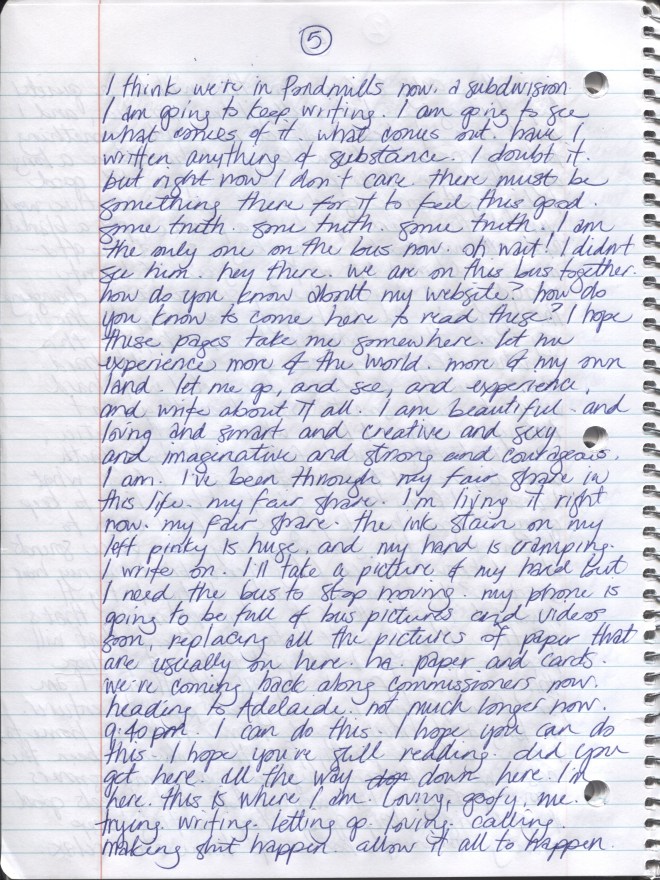 5
I think we're in Pondmills now. a subdivision
I am going to keep writing. I am going to see
what comes of it. what comes out. have I
written anything of substance. I doubt it.
but right now I don't care. there must be
something there for it to feel this good.
some truth. some truth. some truth. I am
the only one on the bus now. oh wait! I didn't
see him. hey there. we are on this bus together.
how do you know about my website? how do
you know to come here to read these? I hope
these pages take me somewhere. let me
experience more of the world. more of my own
land. let me go, and see, and experience,
and write about it all. I am beautiful and
loving and smart and creative and sexy
and imaginative and strong and courageous.
I am. I've been through my fair share in
this life. my fair share. I'm living it right
now. my fair share. the ink stain on my
left pinky is huge, and my hand is cramping.
I write on. I'll take a picture of my hand but
I need the bus to stop moving. my phone is
going to be full of bus pictures and videos
soon, replacing all the pictures of paper that
are usually on here. ha. paper and cards.
we're coming back along commissioners now.
heading to Adelaide. not much longer now.
9:40pm. I can do this. I hope you can do
this. I hope you're still reading. did you
get here. all the way down here. I'm
here. this is where I am. loving, goofy, me.
trying. writing. letting go. loving. calling.
making shit happen. allow it all to happen.